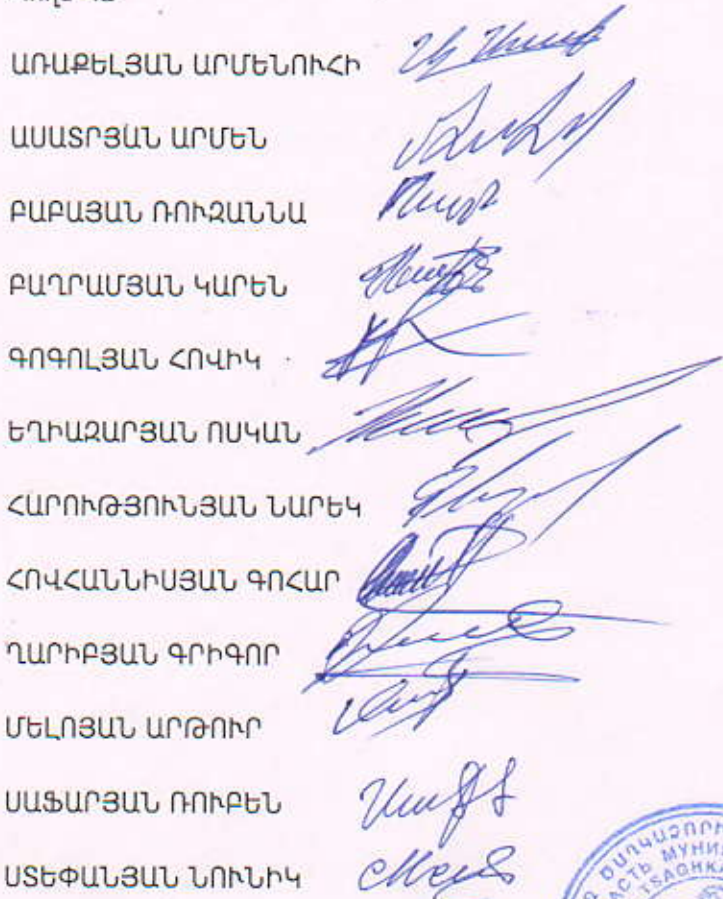 ԱՌԱՔԵԼՅԱՆ ԱՐՄԵՆՈՒՀԻ
ԱՍԱՏՐՅԱՆ ԱՐՄԵՆ
ԲԱԲԱՅԱՆ ՌՈՒԶԱՆՆԱ
ԲԱՂՐԱՄՅԱՆ ԿԱՐԵՆ
ԳՈԳՈԼՅԱՆ ՀՈՎԻԿ
ԵՂԻԱԶԱՐՅԱՆ ՈՍԿԱՆ
ՀԱՐՈՒԹՅՈՒՆՅԱՆ ՆԱՐԵԿ
ՀՈՎՀԱՆՆԻՍՅԱՆ ԳՈՀԱՐ
ՂԱՐԻԲՅԱՆ ԳՐԻԳՈՐ
ՄԵԼՈՅԱՆ ԱՐԹՈՒՐ
ՍԱՖԱՐՅԱՆ ՌՈՒԲԵՆ
ՍՏԵՓԱՆՅԱՆ ՆՈՒՆԻԿ